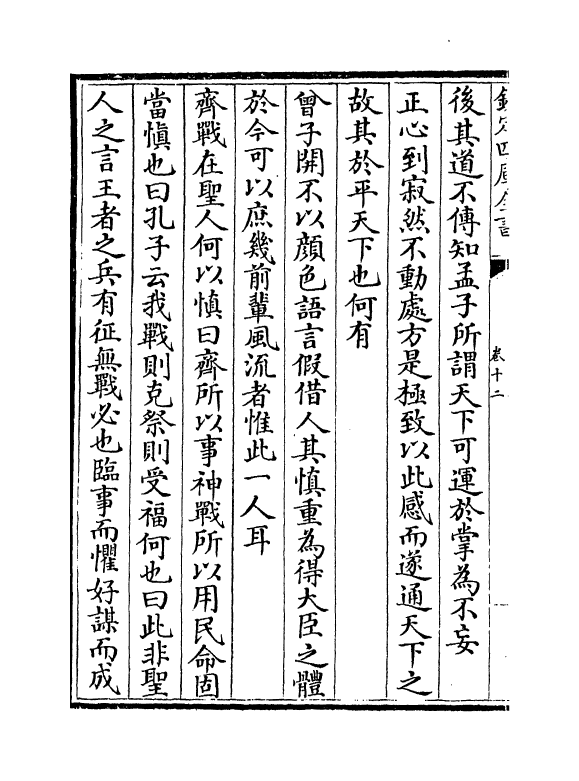 欽定四庫全書
卷十二
後其道不傳知孟子所謂天下可運於掌為不妄
正心到寂然不動處方是極致以此感而遂通天下之
故其於平天下也何有
曾子開不以顔色語言假借人其慎重為得大臣之體
於今可以庶幾前輩風流者惟此一人耳
齊戰在聖人何以慎曰齊所以事神戰所以用民命固
當慎也曰孔子云我戰則克祭則受福何也曰此非聖
人之言王者之兵有征無戰必也臨事而懼好謀而成